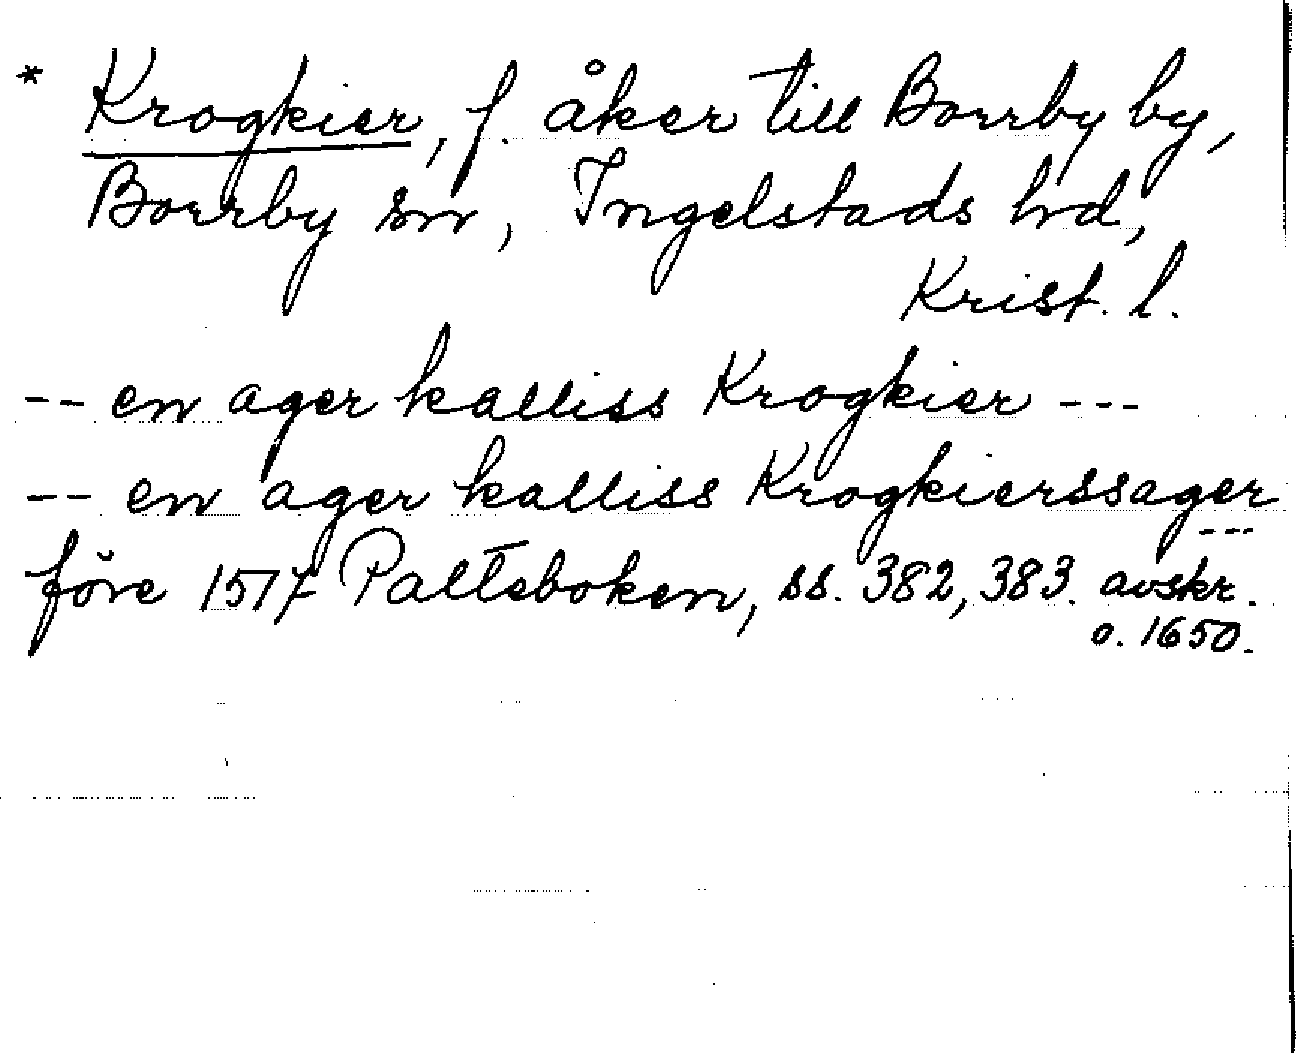 * Krogkier, f. åker till Borrby by,
Borrby sn, Ingelstads hd,
Krist. l.
-- en ager kalliss Krogkier ---
-- en ager kalliss Krogkierssager
---
före 1517 Palteboken, ss. 382, 383. avskr.
o. 1650.